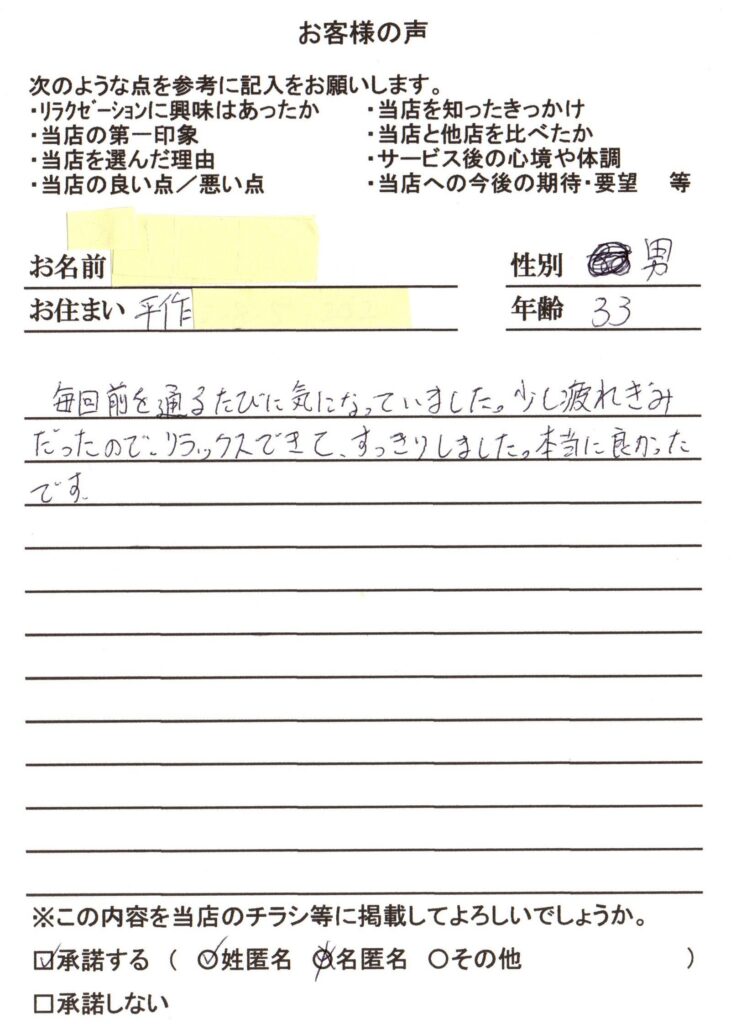 お客様の声
次のような点を参考に記入をお願いします。
・リラクゼーションに興味はあったか ・当店を知ったきっかけ
・当店の第一印象 ・当店と他店を比べたか
・当店を選んだ理由 ・サービス後の心境や体調
・当店の良い点／悪い点 ・当店への今後の期待・要望 等
お名前 性別 男
お住まい 平作 年齢 33
毎回前を通るたびに気になっていました。少し疲れぎみ
だったので、リラックスできて、すっきりしました。本当に良かった
です。
※この内容を当店のチラシ等に掲載してよろしいでしょうか。
☑承諾する ( ○姓匿名 ○名匿名 ○その他 )
□承諾しない